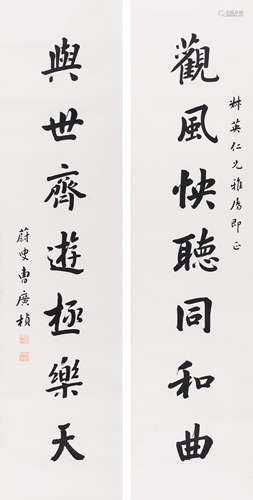 觀風快聽同和曲
與世齊遊極樂天
叔英仁兄雅屬即正
蔚叟曹廣楨